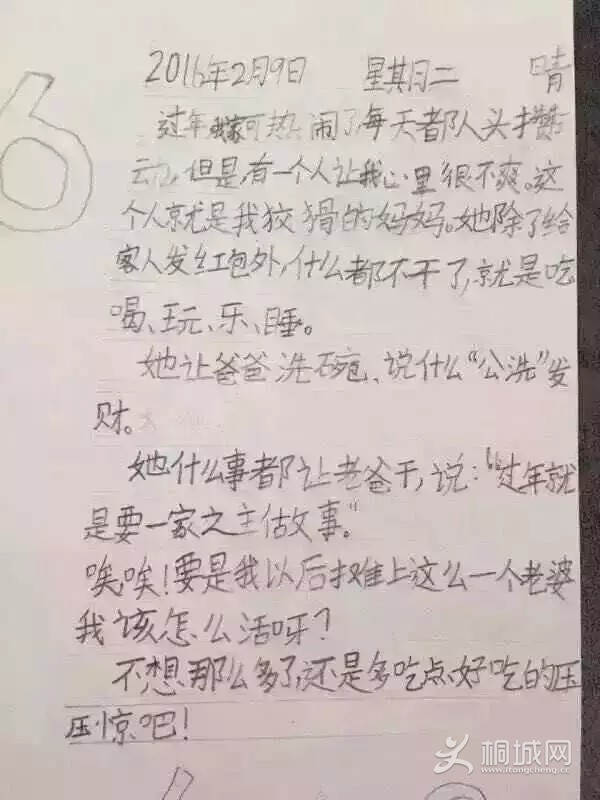 6
2016年2月9日 星期二 晴
过年我家可热闹了,每天都队人头攒
动,但是,有一个人让我心里很不爽。这
个人就是我狡猾的妈妈。她除了给
客人发红包外,什么都不干了,就是吃
喝、玩、乐、睡。
她让爸爸洗碗、说什么“公洗”发
财。
她什么事都让老爸干,说:“过年就
是要一家之主做事。”
唉,唉!要是我以后摊上这么一个老婆
我该怎么活呀?
不想那么多了,还是多吃点好吃的压
压惊吧!
桐城网
www.itongcheng.cc